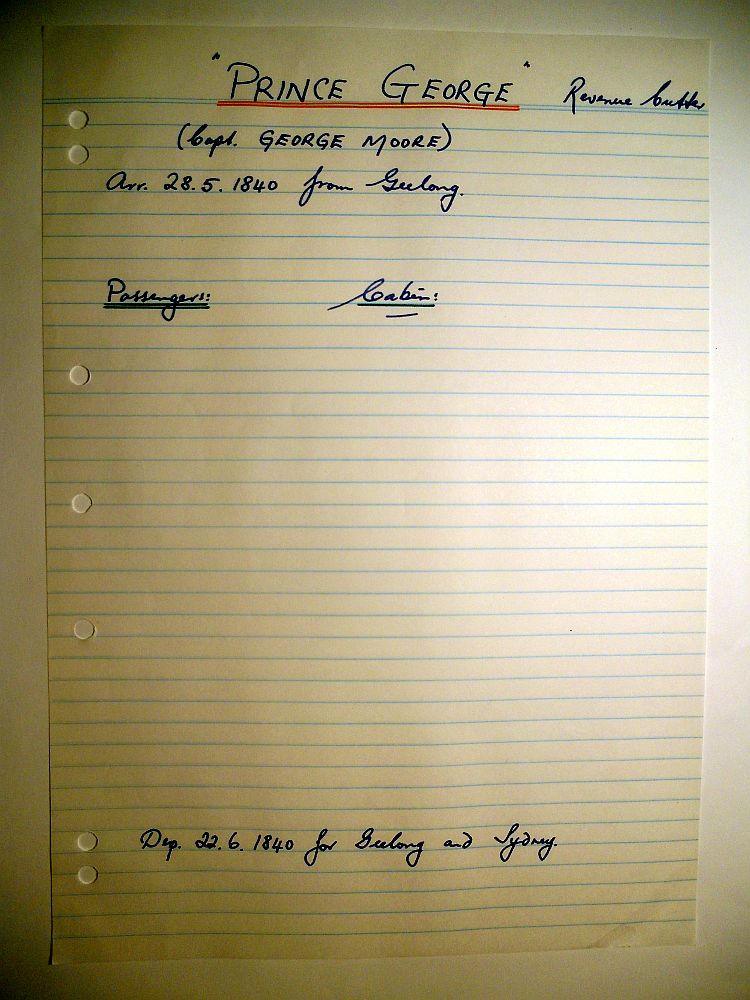 "PRINCE GEORGE" Revenue Cutter
(Capt. GEORGE MOORE)
Arr. 28.5.1840 from Geelong.
Passengers: Cabin:
Dep. 22.6.1840 for Geelong and Sydney.